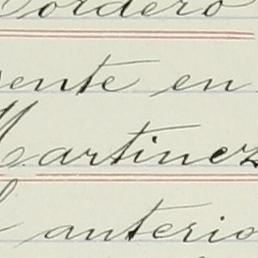 Cordero
ente en
Martinez
l anterio